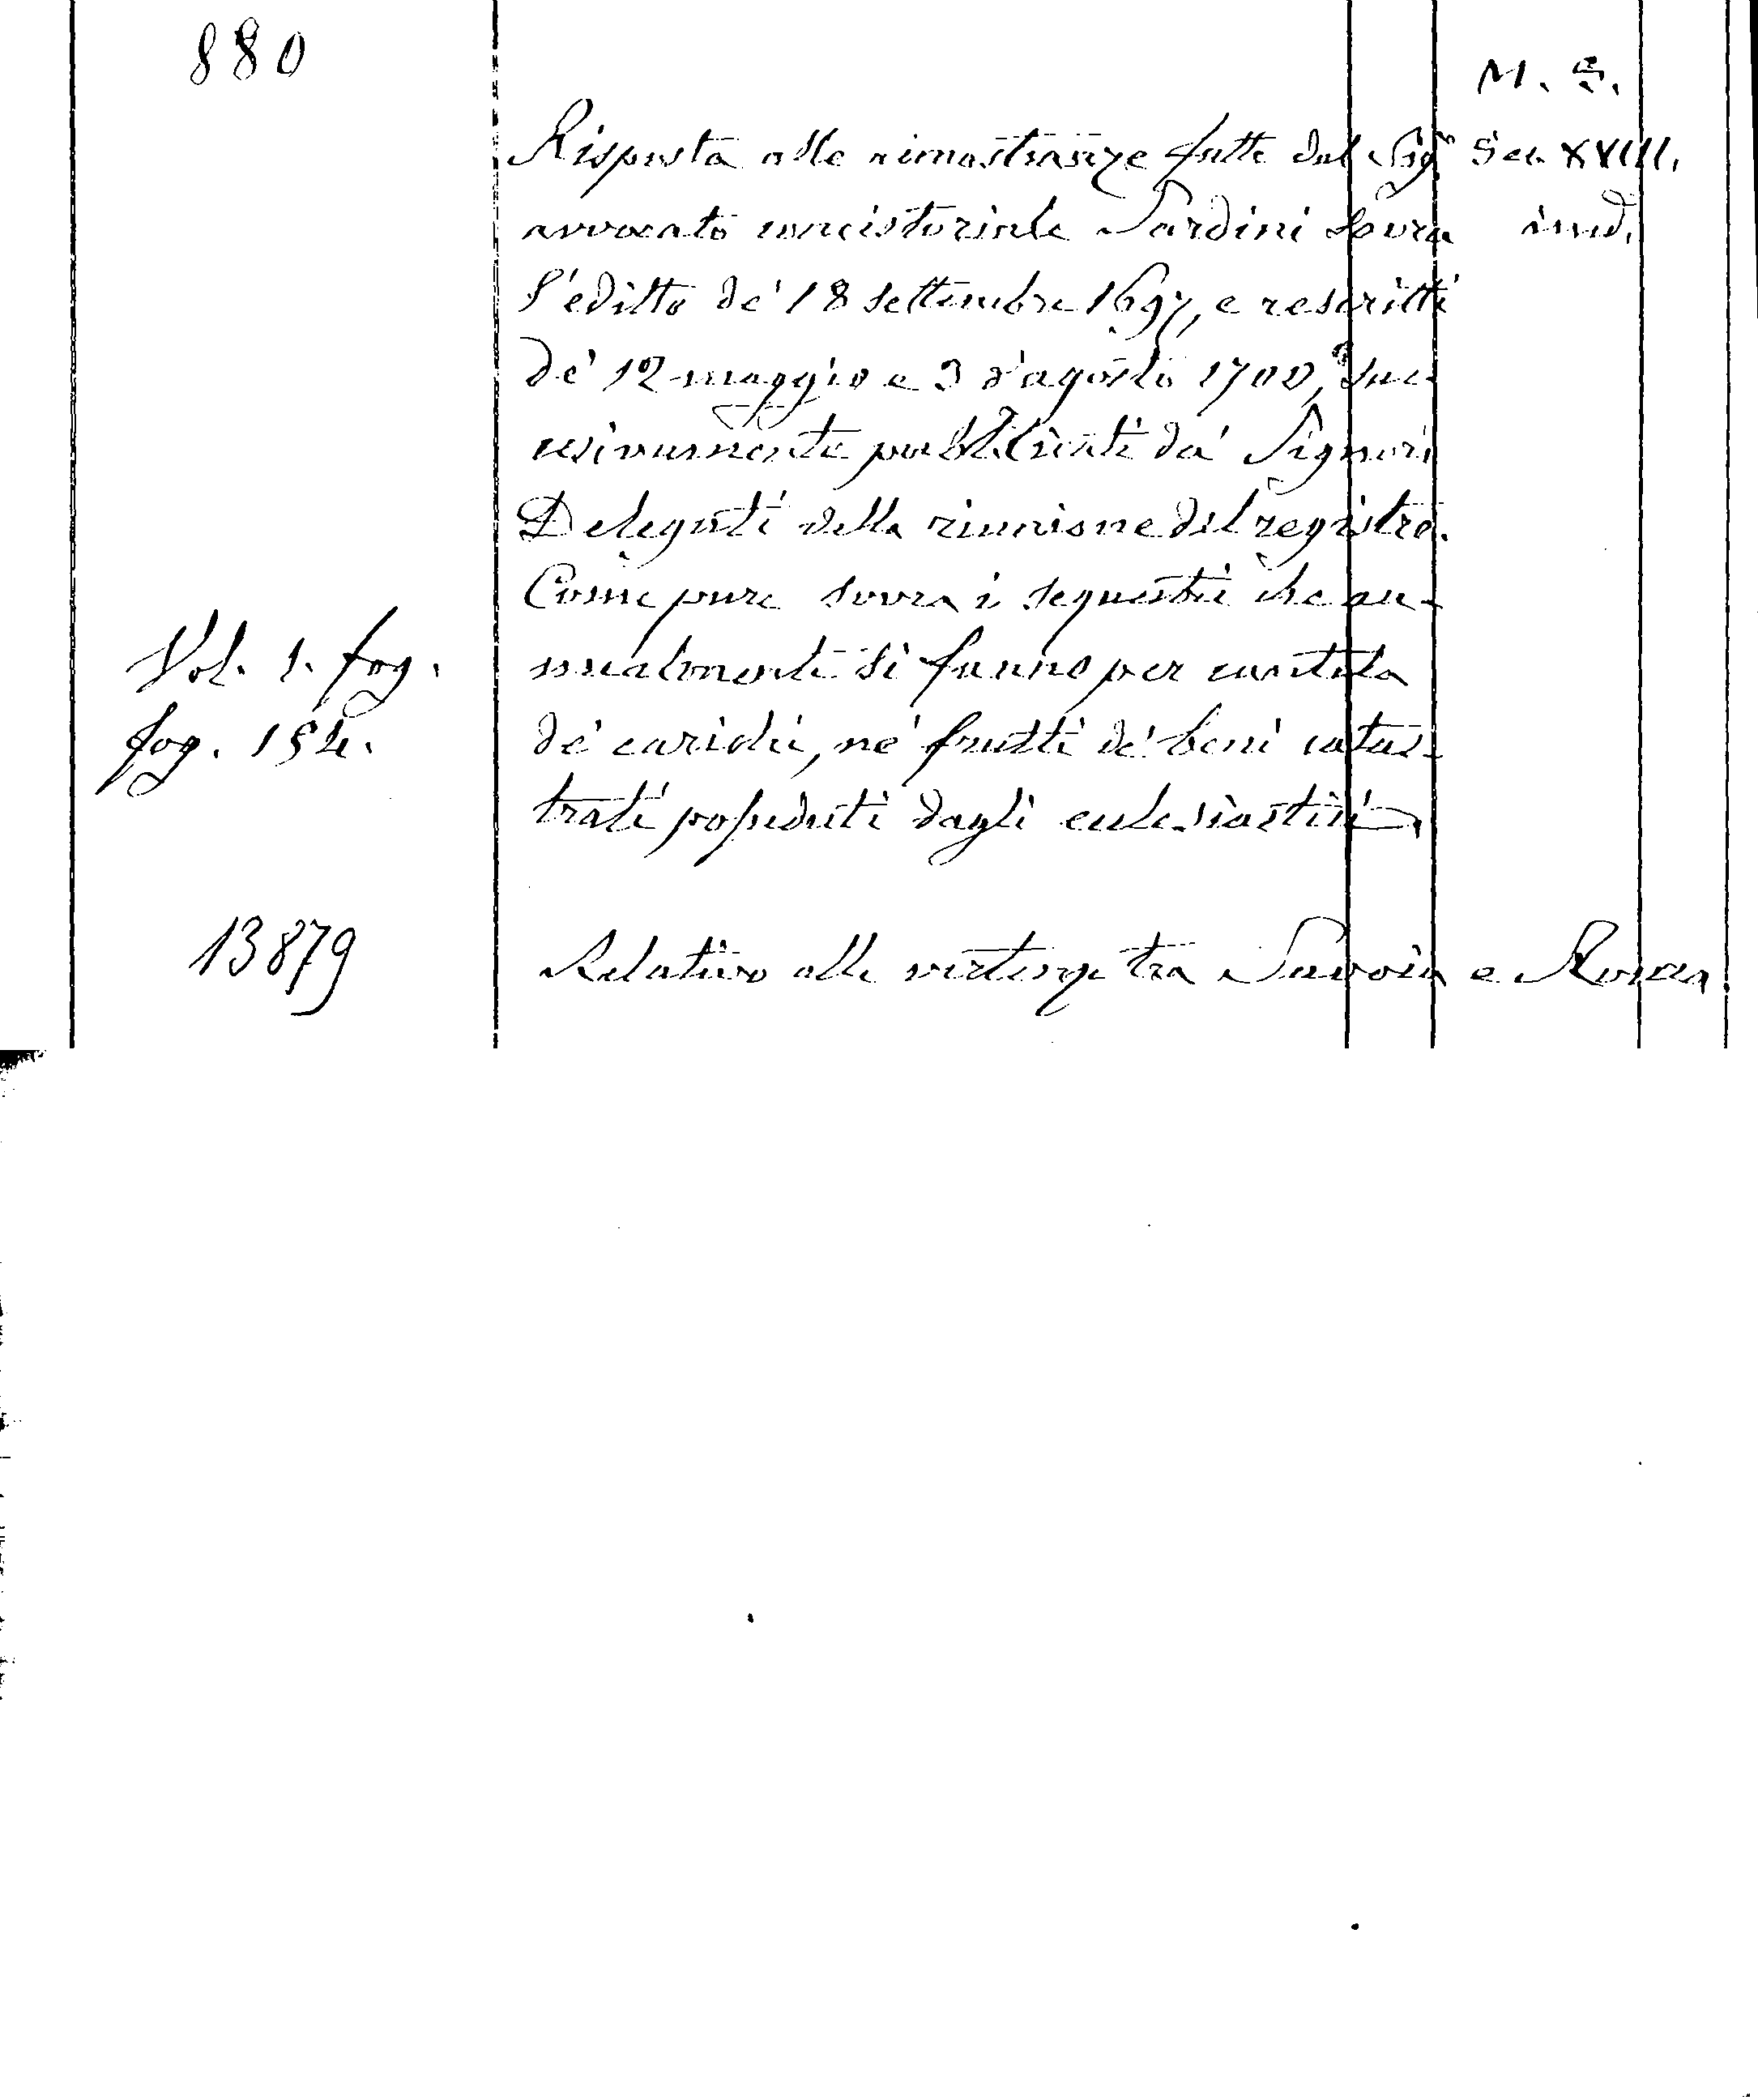 880
M. S.
Risposta alle rimostranze fatte dal Sigr
Sec. XVIII.
avvocato concistoriale Sardini sovra
ined.
l'editto de' 18 settembre 1697, e rescritti
de' 12 maggio e 3 d'agosto 1700, suc-
cesivamente pubblicati da' Signori
Delegati della riunione del registro.
Come pure sovra i sequestri che an-
nualmente si fanno per cautela
Vol. 1. fog.
de' carichi, ne' frutti de' beni catas-
fog. 154.
trati posseduti dagli ecclesiastici
13879
Relativo alle vertenze tra Savoia e Roma.